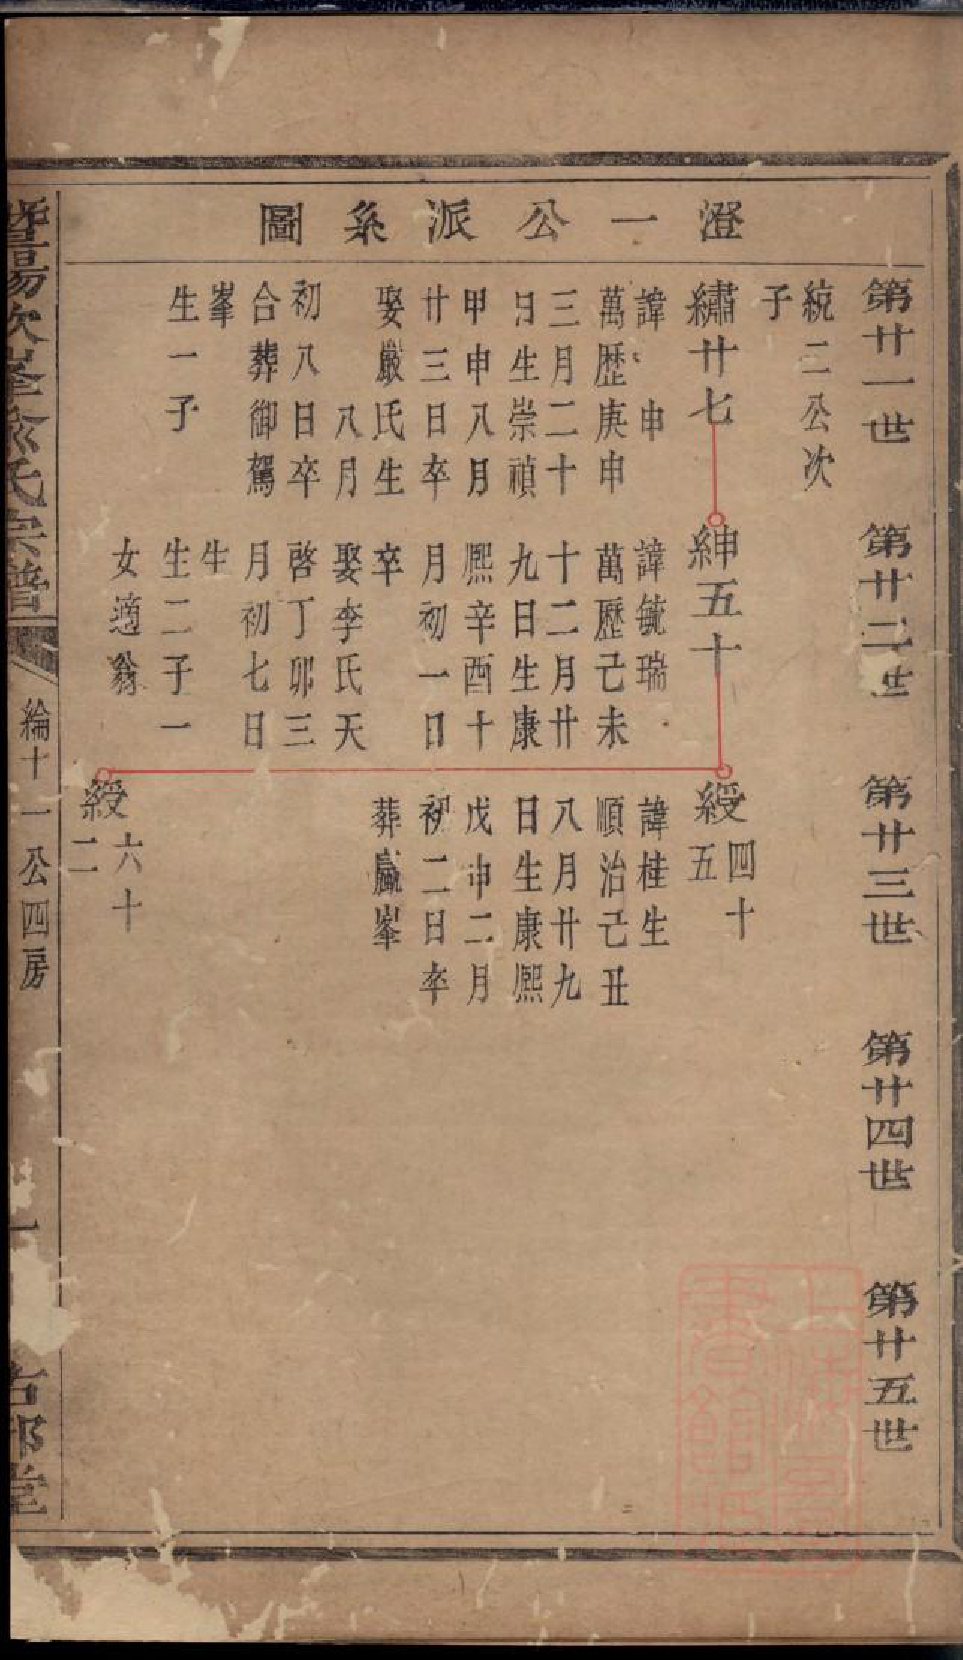 澄一公派系圖
第廿一世
第廿二世
第廿三世
第廿四世
第廿五世
統二公次
子
繡廿七
諱申
萬歷庚申
三月二十
日生崇禎
甲申八月
廿三日卒
娶嚴氏生
八月
初八日卒
合葬御駕
峯
生一子
紳五十
諱毓瑞
萬歷己未
十二月廿
九日生康
熙辛酉十
月初一日
卒
娶李氏天
啓丁卯三
月初七日
生
生二子一
女適翁
綬四十五
諱桂生
順治己丑
八月廿九
日生康熙
戊申二月
初二日卒
葬贏峯
綬六十二
暨陽次峯俞氏宗譜
綸十一公四房
一
古郡堂